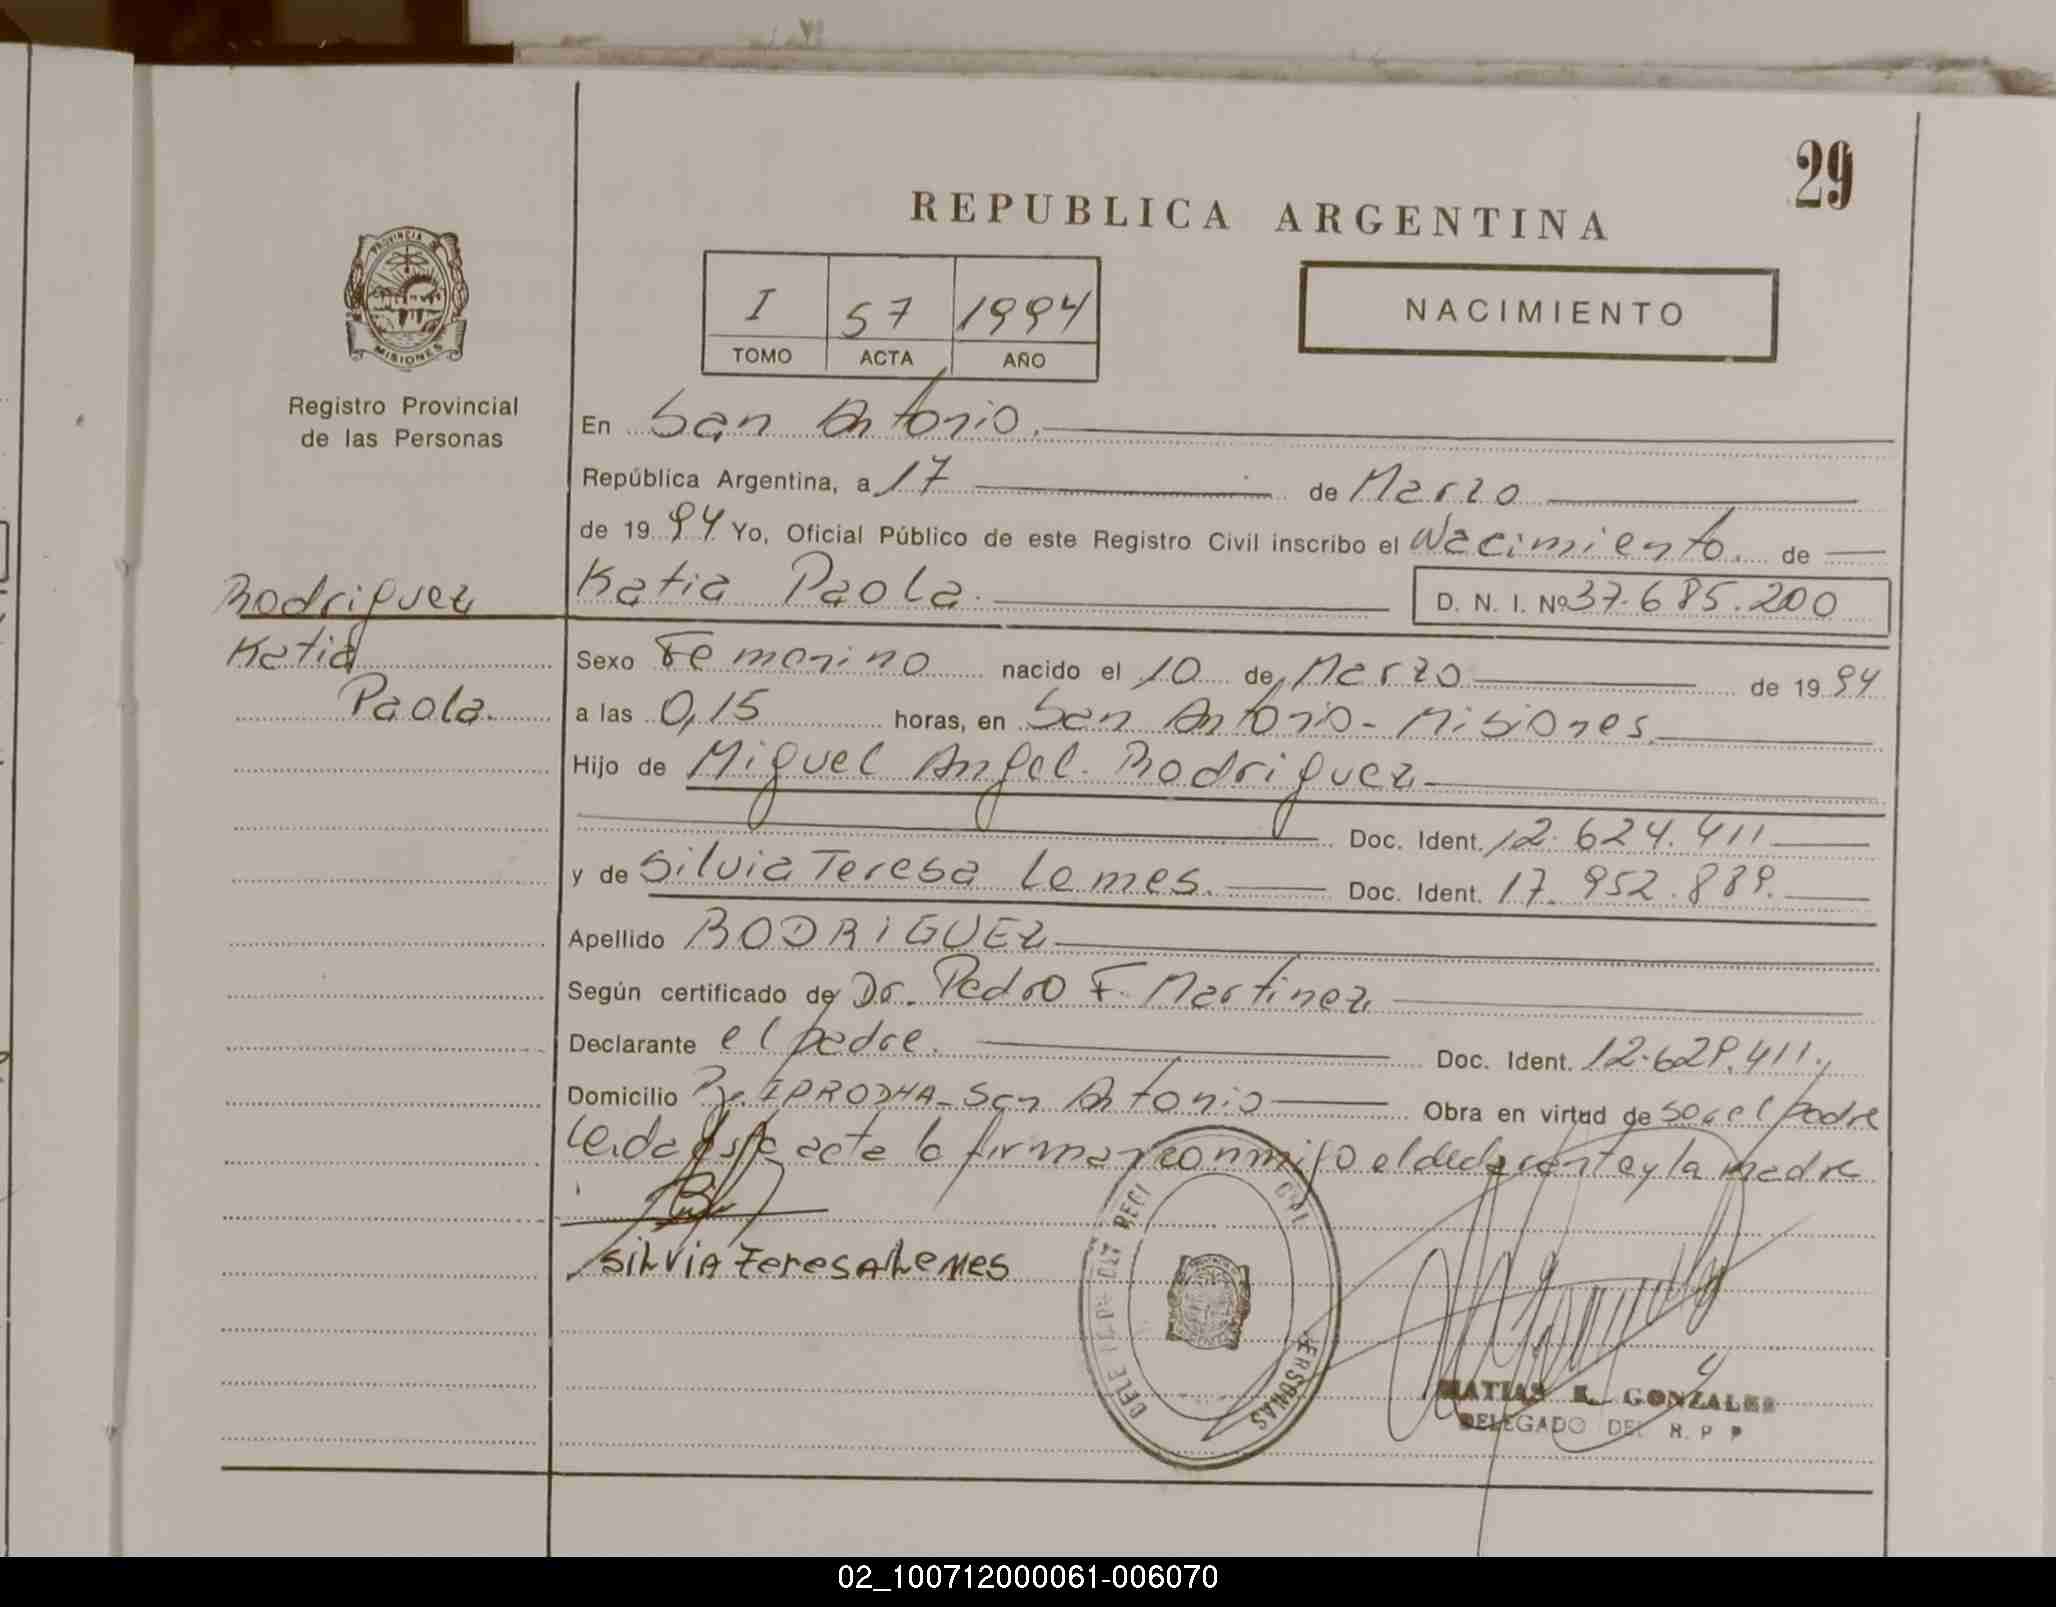 29
REPUBLICA ARGENTINA
PROVINCIA DE
MISIONES
Registro Provincial
de las Personas
I 57 1994
TOMO ACTA AÑO
NACIMIENTO
En San Antonio.
República Argentina, a 17 de Marzo
de 1994 Yo, Oficial Público de este Registro Civil inscribo el Nacimiento. de
Rodriguez
Katia
Paola.
Katia Paola. D. N. I. Nº 37.685.200
Sexo Femenino nacido el 10 de Marzo de 1994
a las 0,15 horas, en San Antonio - Misiones.
Hijo de Miguel Angel. Rodriguez
Doc. Ident. 12.624.411
y de Silvia Teresa Lemes. Doc. Ident. 17.952.889.
Apellido RODRIGUEZ
Según certificado de Dr. Pedro F. Martinez
Declarante el padre. Doc. Ident. 12.629.411.
Domicilio IPRODHA - San Antonio Obra en virtud de ser el padre
Leida este acta la firman conmigo el declarante y la madre
SiLViA teresA LeMes
PERSONAS
MATIAS R. GONZALEZ
DELEGADO DEL R. P. P
02_100712000061-006070